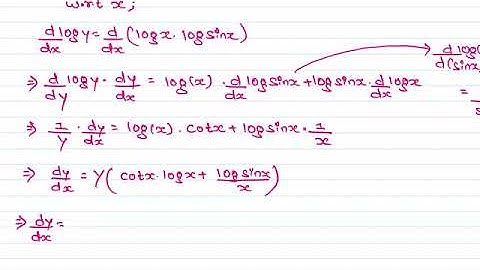 w.r.t x;
d/dx logy = d/dx (logx · logsinx)
⇒ d/dy logy · dy/dx = log(x) · d/dx logsinx + logsinx · d/dx logx
⇒ 1/y · dy/dx = log(x) · cotx + logsinx · 1/x
⇒ dy/dx = y(cotx · logx + logsinx/x)
⇒ dy/dx =
d log(
d(sinx
=